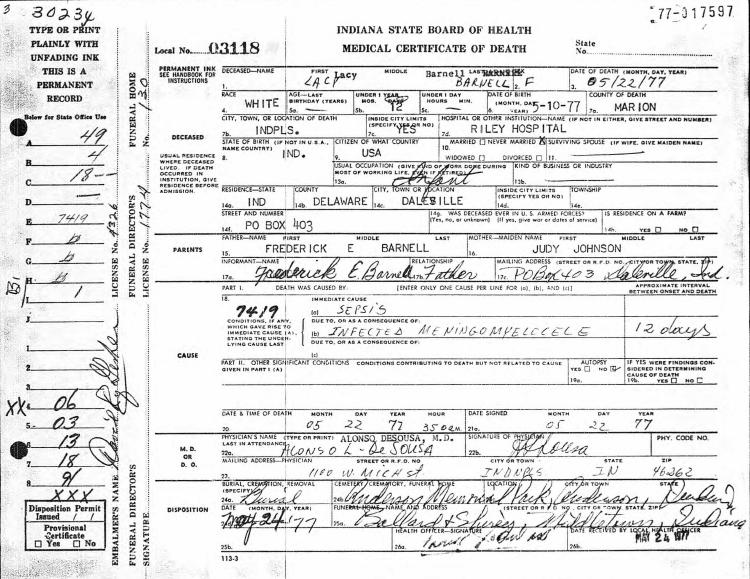 3
30234
77-017597
TYPE OR PRINT
PLAINLY WITH
UNFADING INK
THIS IS A
PERMANENT
RECORD
Below for State Office Use
INDIANA STATE BOARD OF HEALTH
MEDICAL CERTIFICATE OF DEATH
Local No. 03118
State No.
PERMANENT INK
SEE HANDBOOK FOR
INSTRUCTIONS
DECEASED—NAME FIRST MIDDLE LAST
1. LACY Lacy Barnell BARNELL
2. F
3. DATE OF DEATH (MONTH, DAY, YEAR)
05/22/77
RACE
4. WHITE
AGE—LAST BIRTHDAY (YEARS)
5a.
UNDER 1 YEAR
MOS. DAYS
5b. 12
UNDER 1 DAY
HOURS MIN.
5c.
DATE OF BIRTH (MONTH, DAY, YEAR)
6. 5-10-77
COUNTY OF DEATH
7a. MARION
DECEASED
CITY, TOWN, OR LOCATION OF DEATH
7b. INDPLS.
INSIDE CITY LIMITS
(SPECIFY YES OR NO)
7c. YES
HOSPITAL OR OTHER INSTITUTION—NAME (IF NOT IN EITHER, GIVE STREET AND NUMBER)
7d. RILEY HOSPITAL
USUAL RESIDENCE
WHERE DECEASED
LIVED. IF DEATH
OCCURRED IN
INSTITUTION, GIVE
RESIDENCE BEFORE
ADMISSION.
STATE OF BIRTH (IF NOT IN U.S.A., NAME COUNTRY)
8. IND.
CITIZEN OF WHAT COUNTRY
9. USA
10. MARRIED NEVER MARRIED X
WIDOWED DIVORCED
SURVIVING SPOUSE (IF WIFE, GIVE MAIDEN NAME)
11.
USUAL OCCUPATION (GIVE KIND OF WORK DONE DURING MOST OF WORKING LIFE, EVEN IF RETIRED)
13a. Infant
KIND OF BUSINESS OR INDUSTRY
13b.
RESIDENCE—STATE
14a. IND
COUNTY
14b. DELAWARE
CITY, TOWN OR LOCATION
14c. DALESVILLE
INSIDE CITY LIMITS
(SPECIFY YES OR NO)
14d.
TOWNSHIP
14e.
STREET AND NUMBER
14f. PO BOX 403
14g. WAS DECEASED EVER IN U.S. ARMED FORCES?
(Yes, no, or unknown) (If yes, give war or dates of service)
IS RESIDENCE ON A FARM?
14h. YES NO
PARENTS
FATHER—NAME FIRST MIDDLE LAST
15. FREDERICK E BARNELL
MOTHER—MAIDEN NAME FIRST MIDDLE LAST
16. JUDY JOHNSON
INFORMANT—NAME
17a. Frederick E. Barnell
RELATIONSHIP
17b. Father
MAILING ADDRESS (STREET OR R.F.D. NO., CITY OR TOWN, STATE, ZIP)
17c. PO Box 403 Daleville, Ind.
PART I. DEATH WAS CAUSED BY: [ENTER ONLY ONE CAUSE PER LINE FOR (a), (b), AND (c)]
APPROXIMATE INTERVAL
BETWEEN ONSET AND DEATH
18. IMMEDIATE CAUSE
7419
(a) SEPSIS
CONDITIONS, IF ANY,
WHICH GAVE RISE TO
IMMEDIATE CAUSE (A),
STATING THE UNDER-
LYING CAUSE LAST
DUE TO, OR AS A CONSEQUENCE OF:
(b) INFECTED MENINGOMYELOCELE
12 days
DUE TO, OR AS A CONSEQUENCE OF:
(c)
CAUSE
PART II. OTHER SIGNIFICANT CONDITIONS CONDITIONS CONTRIBUTING TO DEATH BUT NOT RELATED TO CAUSE
GIVEN IN PART I (A)
AUTOPSY
YES NO
19a.
IF YES WERE FINDINGS CON-
SIDERED IN DETERMINING
CAUSE OF DEATH
19b. YES NO
DATE & TIME OF DEATH MONTH DAY YEAR HOUR
20. 05 22 77 350 AM.
DATE SIGNED MONTH DAY YEAR
21a. 05 22 77
M.D.
OR
D.O.
PHYSICIAN'S NAME (TYPE OR PRINT) ALONSO DESOUSA, M.D.
LAST IN ATTENDANCE
22a. ALONSO L- DeSOUSA
SIGNATURE OF PHYSICIAN
22b.
PHY. CODE NO.
MAILING ADDRESS—PHYSICIAN STREET OR R.F.D. NO. CITY OR TOWN STATE ZIP
23. 1100 W. MICH ST INDNPLS IN 46262
DISPOSITION
BURIAL, CREMATION, REMOVAL
(SPECIFY)
24a. Burial
CEMETERY, CREMATORY, FUNERAL HOME LOCATION CITY OR TOWN STATE
24b. Anderson Memorial Park, Anderson, Indiana
DATE (MONTH, DAY, YEAR)
May 24 '77
FUNERAL HOME, NAME AND ADDRESS (STREET OR R.F.D. NO., CITY OR TOWN, STATE, ZIP)
25a. Ballard & Shirey, Middletown, Indiana
25b.
HEALTH OFFICER—SIGNATURE
26a.
DATE RECEIVED BY LOCAL HEALTH OFFICER
26b. MAY 24 1977
113-3
A 49
B 4
C 18—
D —
E 7419
F
G
H
I 1
J
1
2
3
XX 4 06
5 03
6 13
7 18
8 91
XXX
Disposition Permit
Issued
Provisional
Certificate
Yes No
EMBALMER'S NAME LICENSE No. 4326
FUNERAL DIRECTOR'S LICENSE No. 1774
FUNERAL HOME No. 130
FUNERAL DIRECTOR'S SIGNATURE